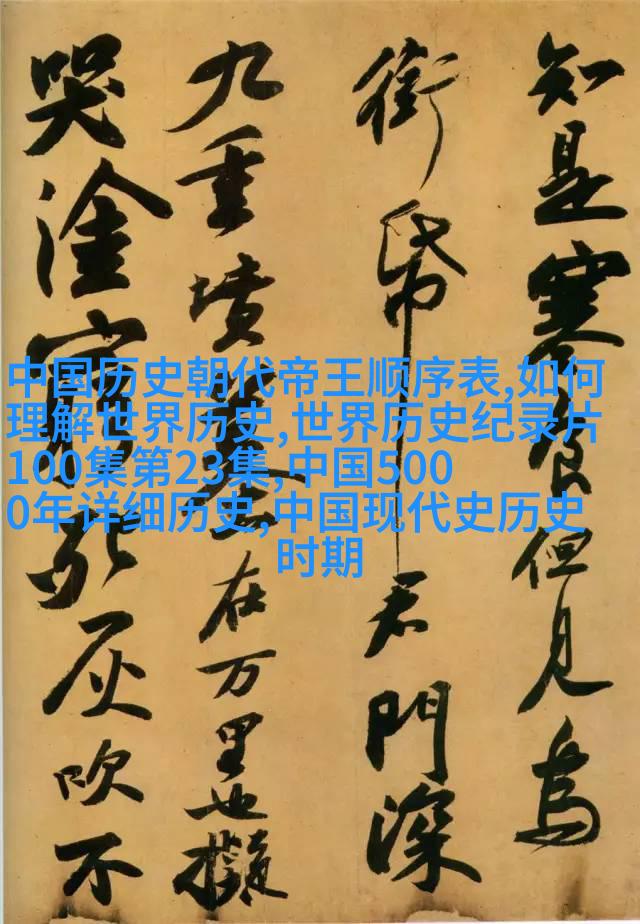 知是寒食但見烏
銜帋君門深
九重墳墓在万里也擬
哭塗窮死灰吹不
中国历史朝代帝王顺序表,如何
理解世界历史,世界历史纪录片
100集第23集,中国500
0年详细历史,中国现代史历史
时期